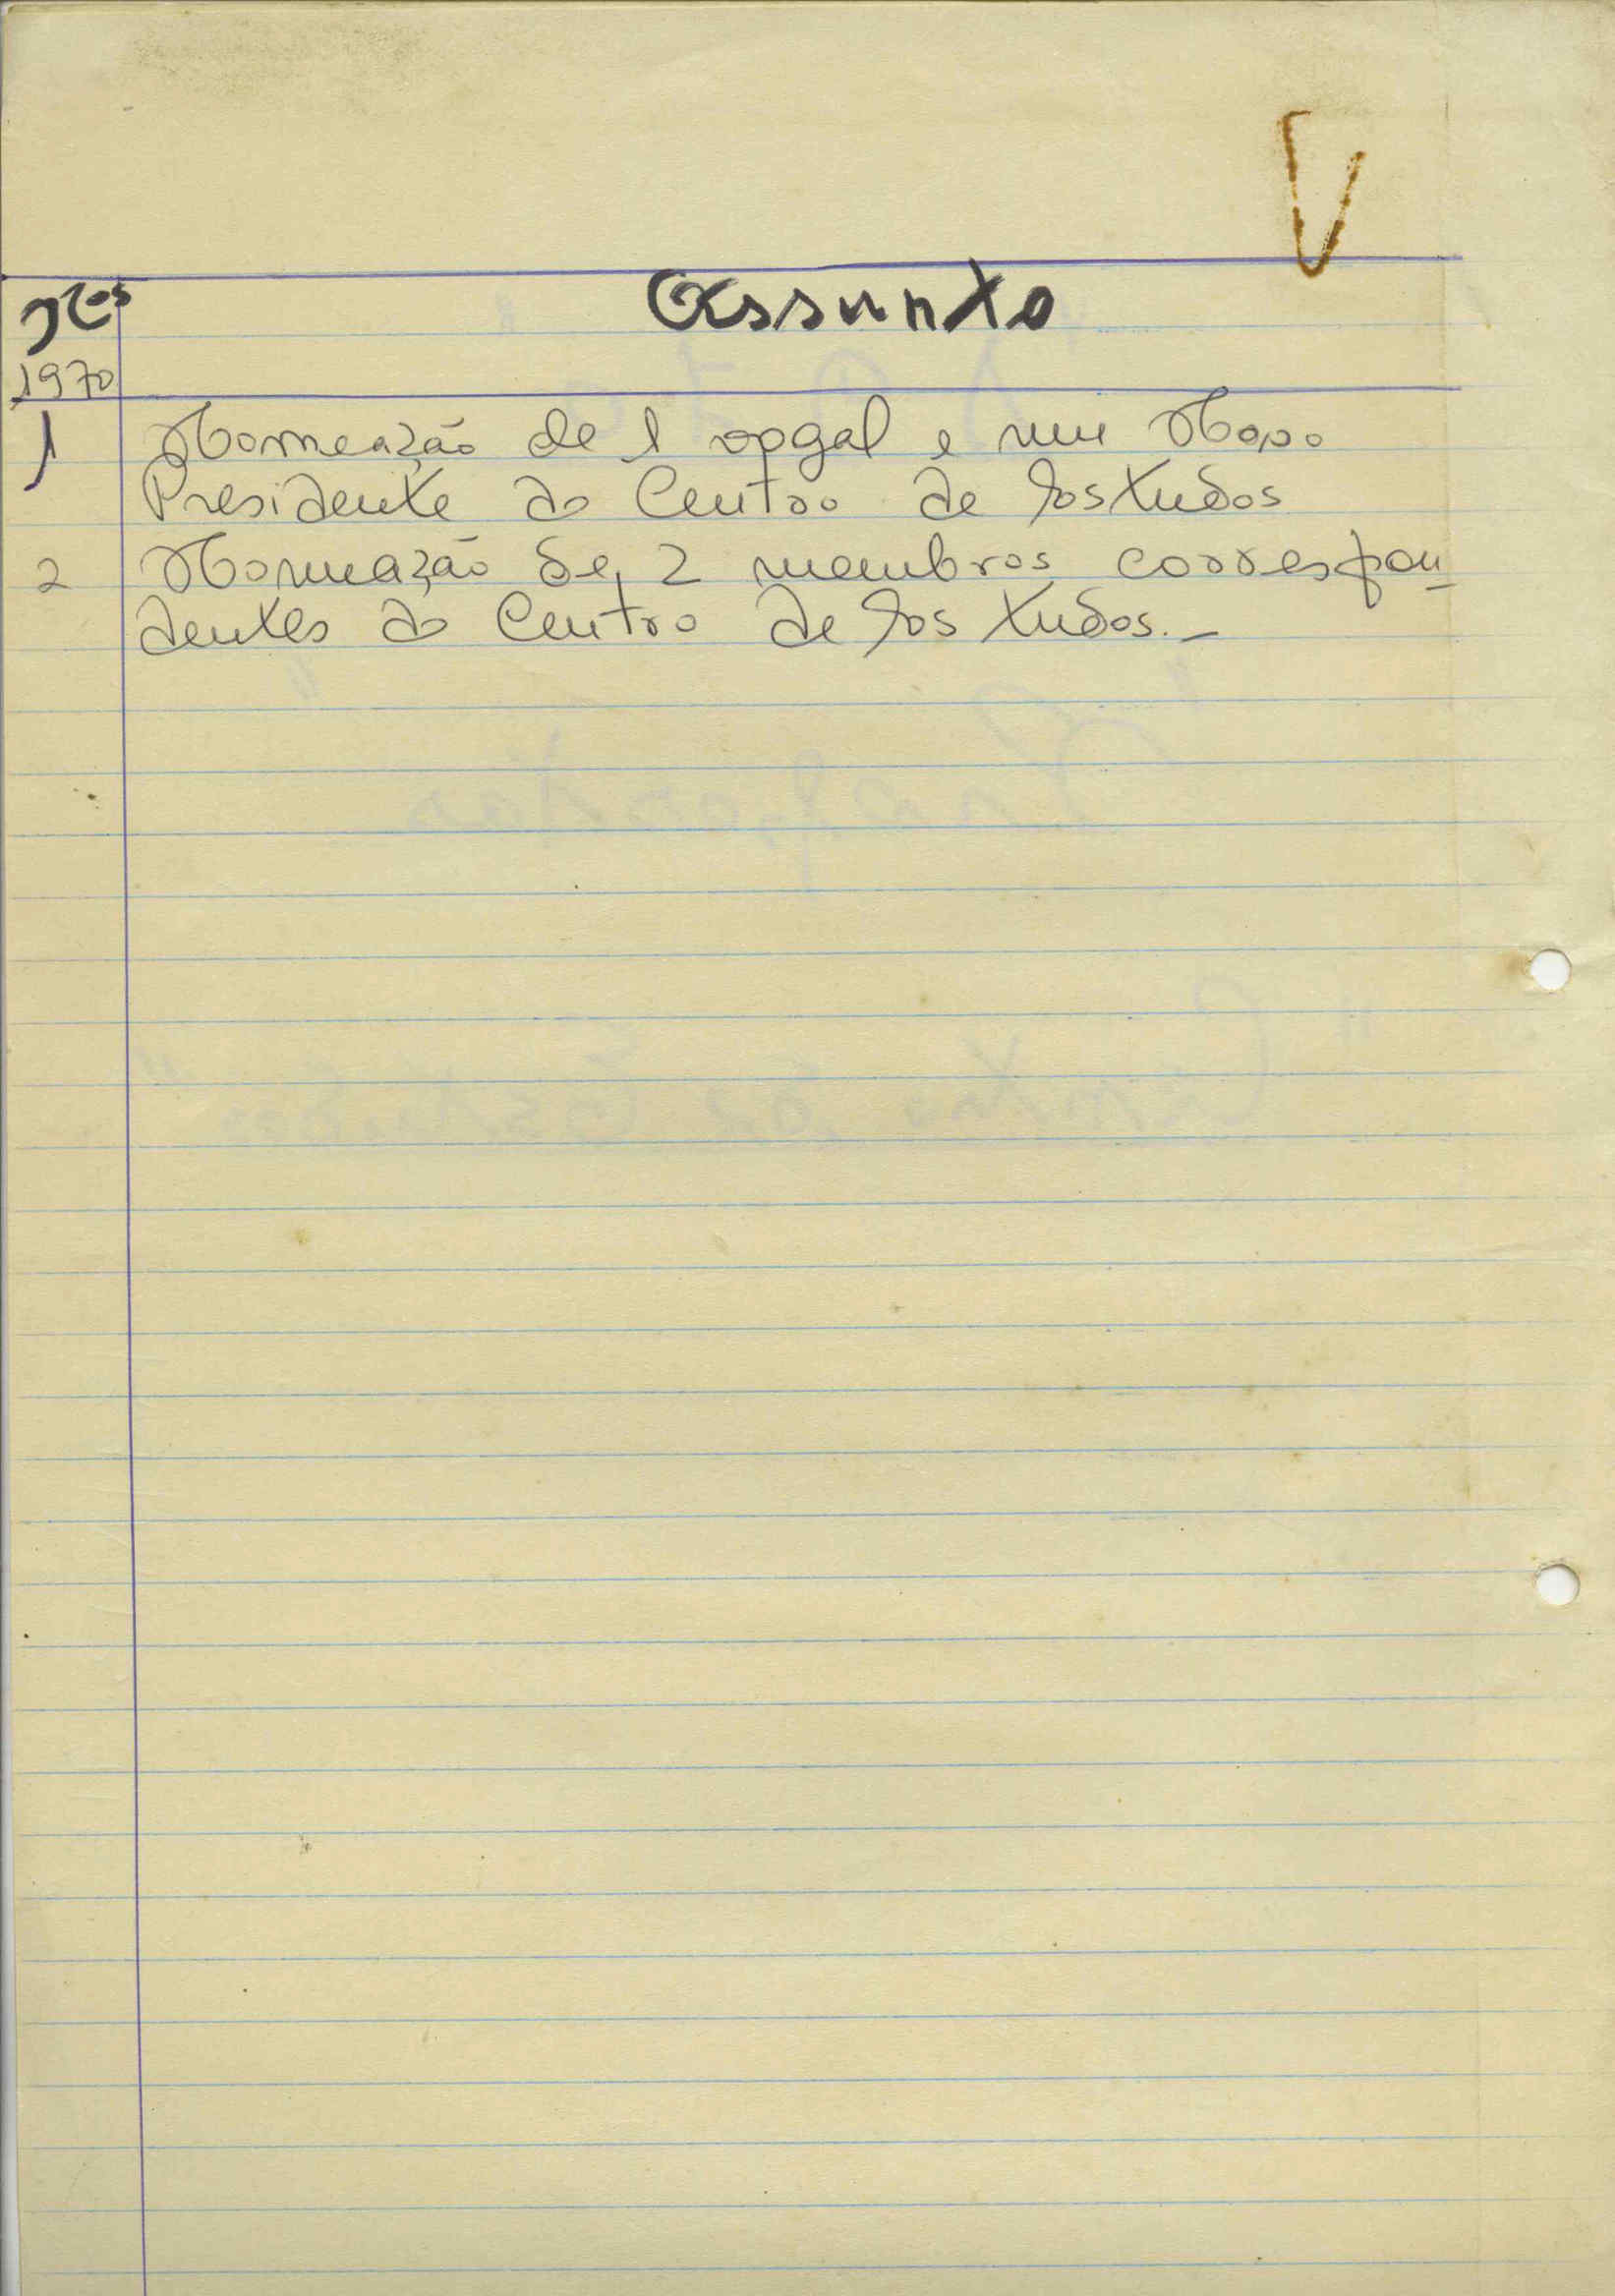 Nos Assunto
1970
1 Nomeação de 1 vogal e um Novo
Presidente do Centro de Estudos
2 Nomeação de 2 membros correspon-
dentes do Centro de Estudos.-